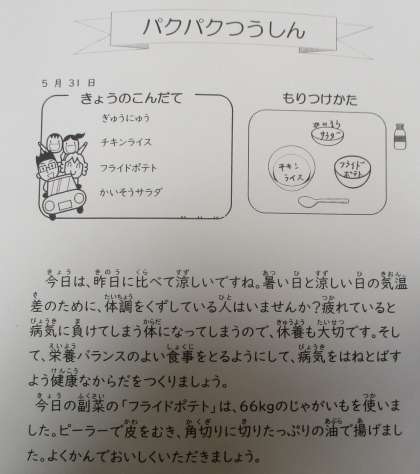 パクパクつうしん
5月31日
きょうのこんだて
ぎゅうにゅう
チキンライス
フライドポテト
かいそうサラダ
もりつけかた
かいそう
サラダ
チキン
ライス
フライド
ポテト
今日は、昨日に比べて涼しいですね。暑い日と涼しい日の気温
差のために、体調をくずしている人はいませんか？疲れていると
病気に負けてしまう体になってしまうので、休養も大切です。そし
て、栄養バランスのよい食事をとるようにして、病気をはねとばす
よう健康なからだをつくりましょう。
今日の副菜の「フライドポテト」は、66kgのじゃがいもを使いま
した。ピーラーで皮をむき、角切りに切りたっぷりの油で揚げまし
た。よくかんでおいしくいただきましょう。